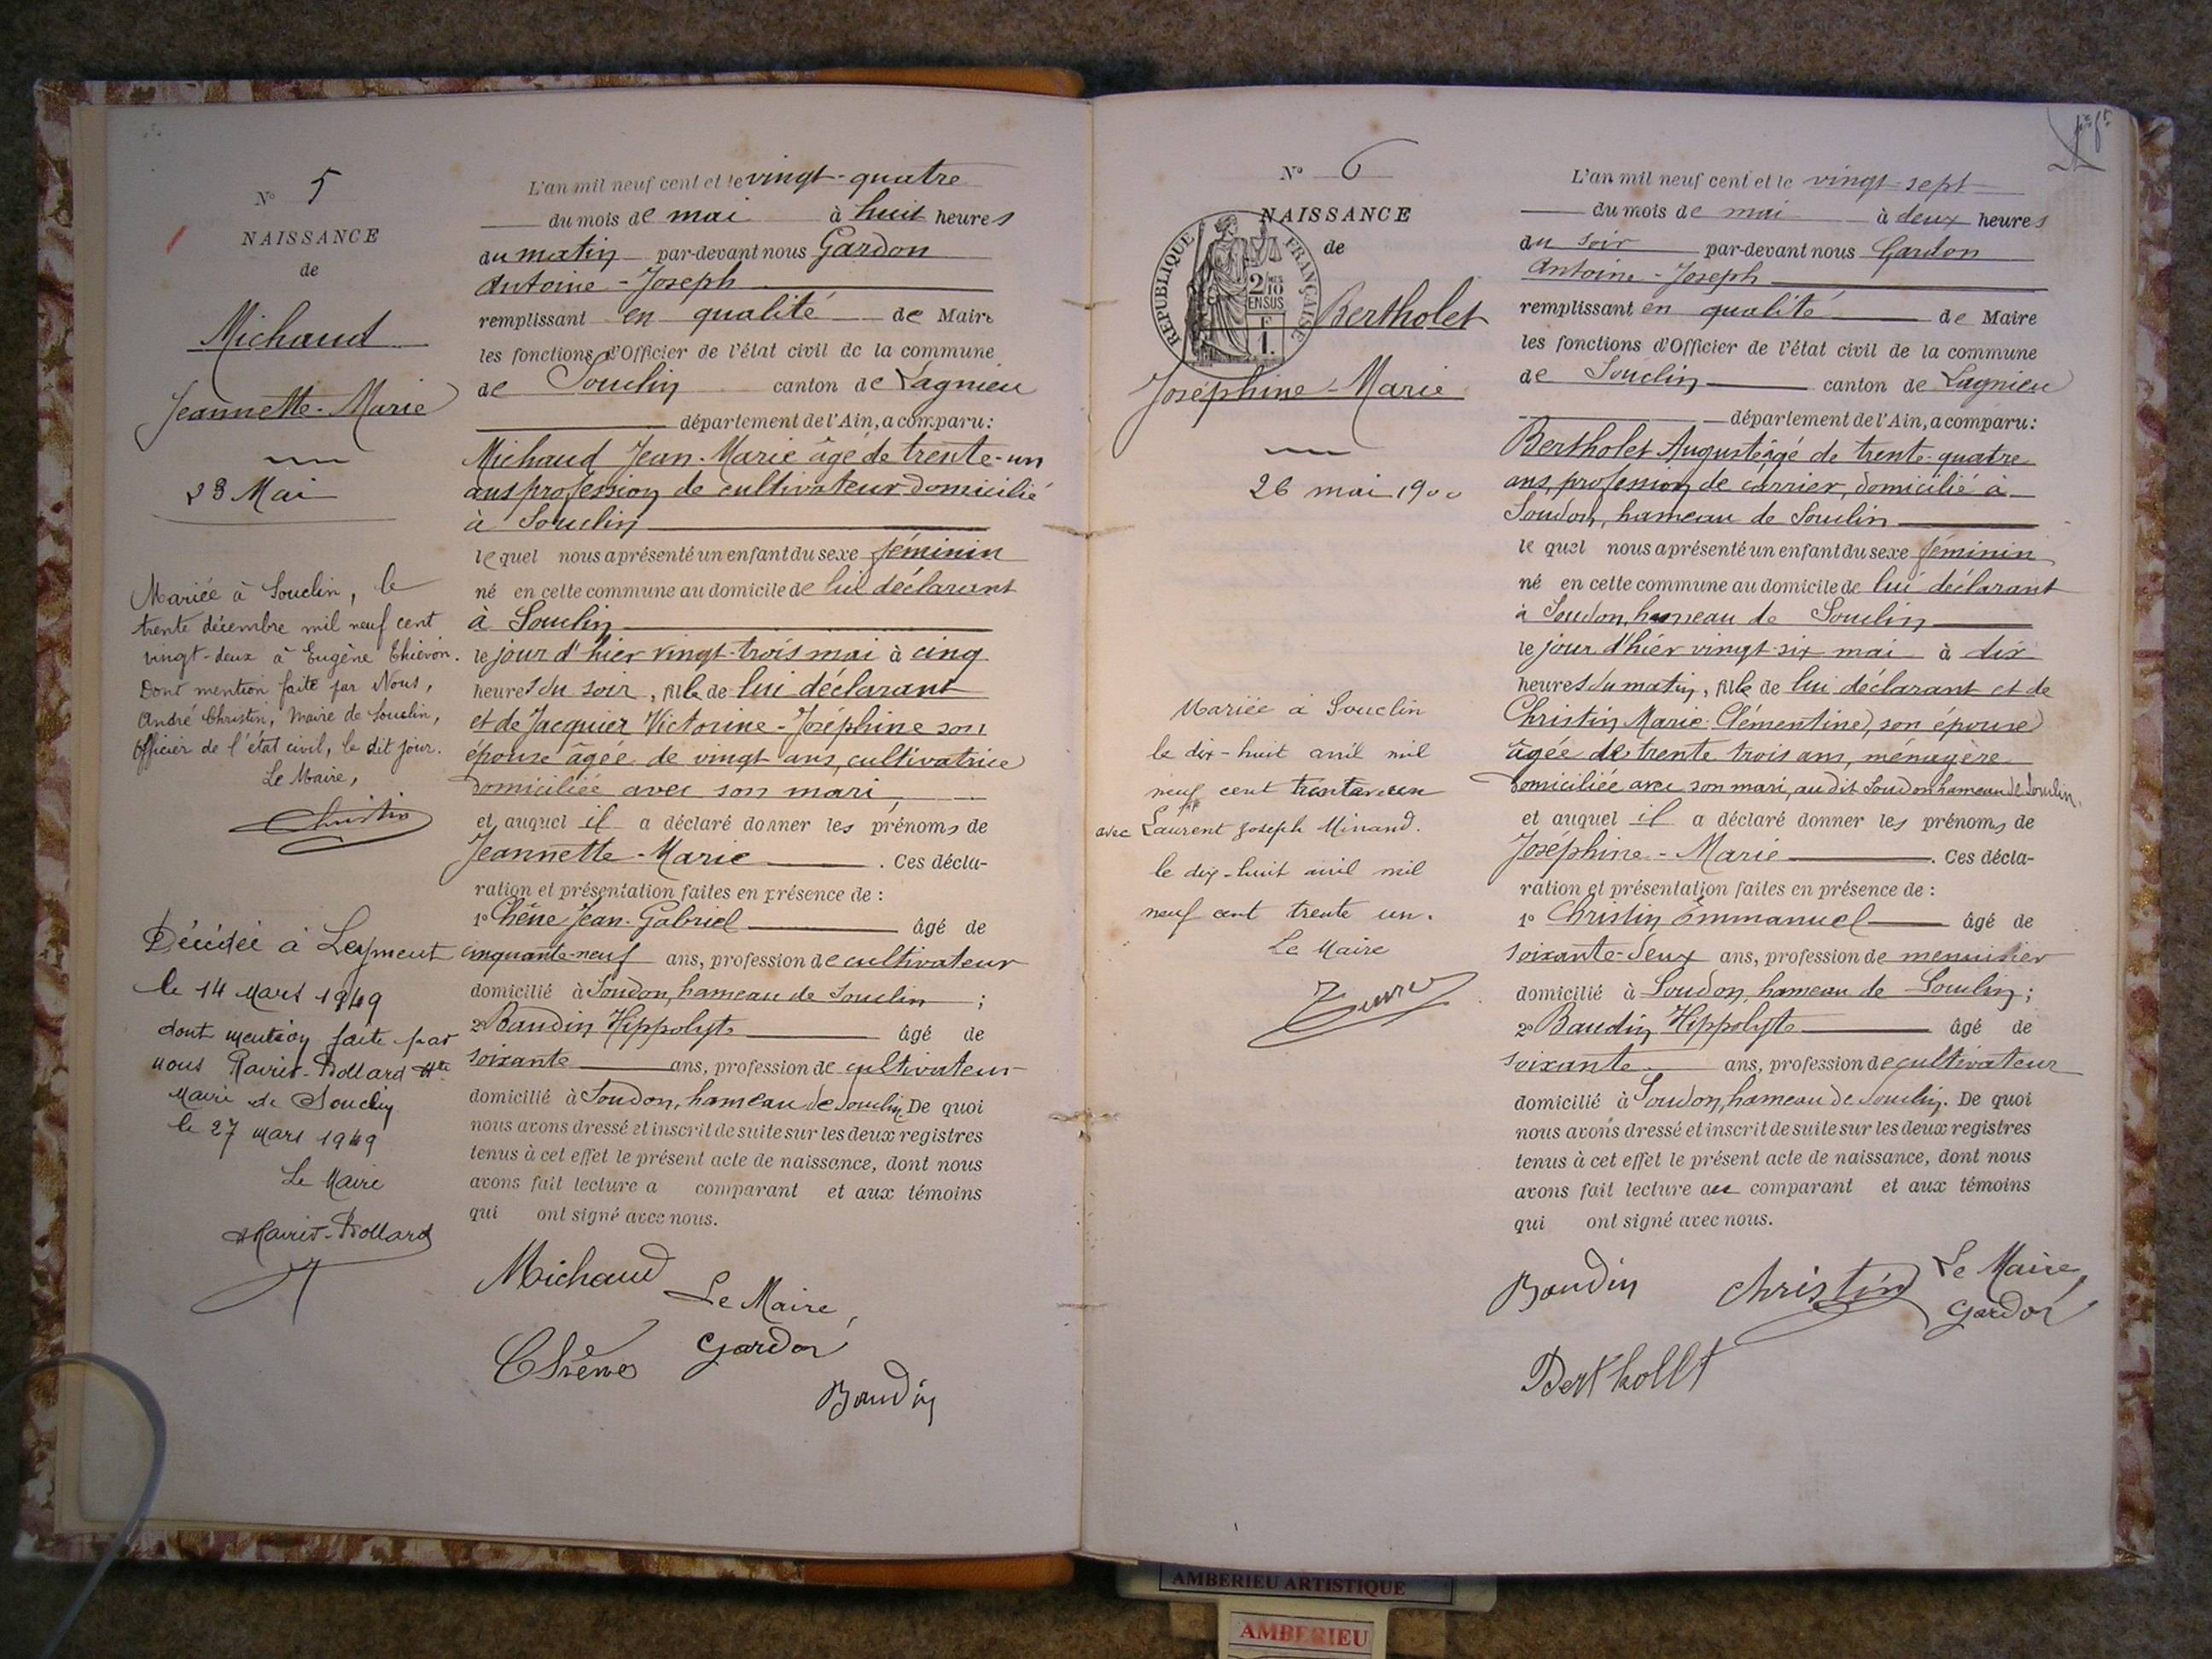 N° 5
NAISSANCE
de
Michaud
Jeannette-Marie
23 Mai
Mariée à Souclin, le
trente décembre mil neuf cent
vingt-deux à Eugène Thiévon.
Dont mention faite par Nous,
André Christin, Maire de Souclin,
Officier de l'état civil, le dit jour.
Le Maire,
Christin
Décédée à Leyment
le 14 Mars 1949
dont mention faite par
nous Ravier-Bollard
Maire de Souclin
le 27 Mars 1949
Le Maire
Ravier-Bollard
L'an mil neuf cent et le vingt-quatre
du mois de mai à huit heures
du matin par-devant nous Gardon
Antoine-Joseph
remplissant en qualité de Maire
les fonctions d'Officier de l'état civil de la commune
de Souclin canton de Lagnieu
département de l'Ain, a comparu:
Michaud Jean-Marie âgé de trente-un
ans profession de cultivateur domicilié
à Souclin
lequel nous a présenté un enfant du sexe féminin
né en cette commune au domicile de lui déclarant
à Souclin
le jour d'hier vingt-trois mai à cinq
heures du soir, fille de lui déclarant
et de Jacquier Victorine-Joséphine son
épouse âgée de vingt ans, cultivatrice
domiciliée avec son mari,
et auquel il a déclaré donner les prénoms de
Jeannette-Marie. Ces décla-
ration et présentation faites en présence de :
1° Chêne Jean-Gabriel âgé de
cinquante-neuf ans, profession de cultivateur
domicilié à Soudon, hameau de Souclin ;
2° Baudin Hippolyte âgé de
soixante ans, profession de cultivateur
domicilié à Soudon, hameau de Souclin De quoi
nous avons dressé et inscrit de suite sur les deux registres
tenus à cet effet le présent acte de naissance, dont nous
avons fait lecture a comparant et aux témoins
qui ont signé avec nous.
Michaud Le Maire,
Chêne Gardon
Baudin
N° 6
NAISSANCE
de
REPUBLIQUE FRANÇAISE
2/10
EN SUS
F
1.
Bertholet
Joséphine-Marie
26 mai 1900
Mariée à Souclin
le dix-huit avril mil
neuf cent trente un
avec Laurent Joseph Minand.
le dix-huit avril mil
neuf cent trente un.
Le Maire
L'an mil neuf cent et le vingt-sept
du mois de mai à deux heures
du soir par-devant nous Gardon
Antoine-Joseph
remplissant en qualité de Maire
les fonctions d'Officier de l'état civil de la commune
de Souclin canton de Lagnieu
département de l'Ain, a comparu:
Bertholet Auguste âgé de trente-quatre
ans, profession de carrier, domicilié à
Soudon, hameau de Souclin
lequel nous a présenté un enfant du sexe féminin
né en cette commune au domicile de lui déclarant
à Soudon, hameau de Souclin
le jour d'hier vingt-six mai à dix
heures du matin, fille de lui déclarant et de
Christin Marie-Clémentine, son épouse
âgée de trente trois ans, ménagère
domiciliée avec son mari, audit Soudon hameau de Souclin,
et auquel il a déclaré donner les prénoms de
Joséphine-Marie. Ces décla-
ration et présentation faites en présence de :
1° Christin Emmanuel âgé de
soixante-deux ans, profession de menuisier
domicilié à Soudon, hameau de Souclin;
2° Baudin Hippolyte âgé de
soixante ans, profession de cultivateur
domicilié à Soudon, hameau de Souclin. De quoi
nous avons dressé et inscrit de suite sur les deux registres
tenus à cet effet le présent acte de naissance, dont nous
avons fait lecture au comparant et aux témoins
qui ont signé avec nous.
Baudin Christin Le Maire
Gardon
Berthollt
AMBERIEU ARTISTIQUE
AMBERIEU